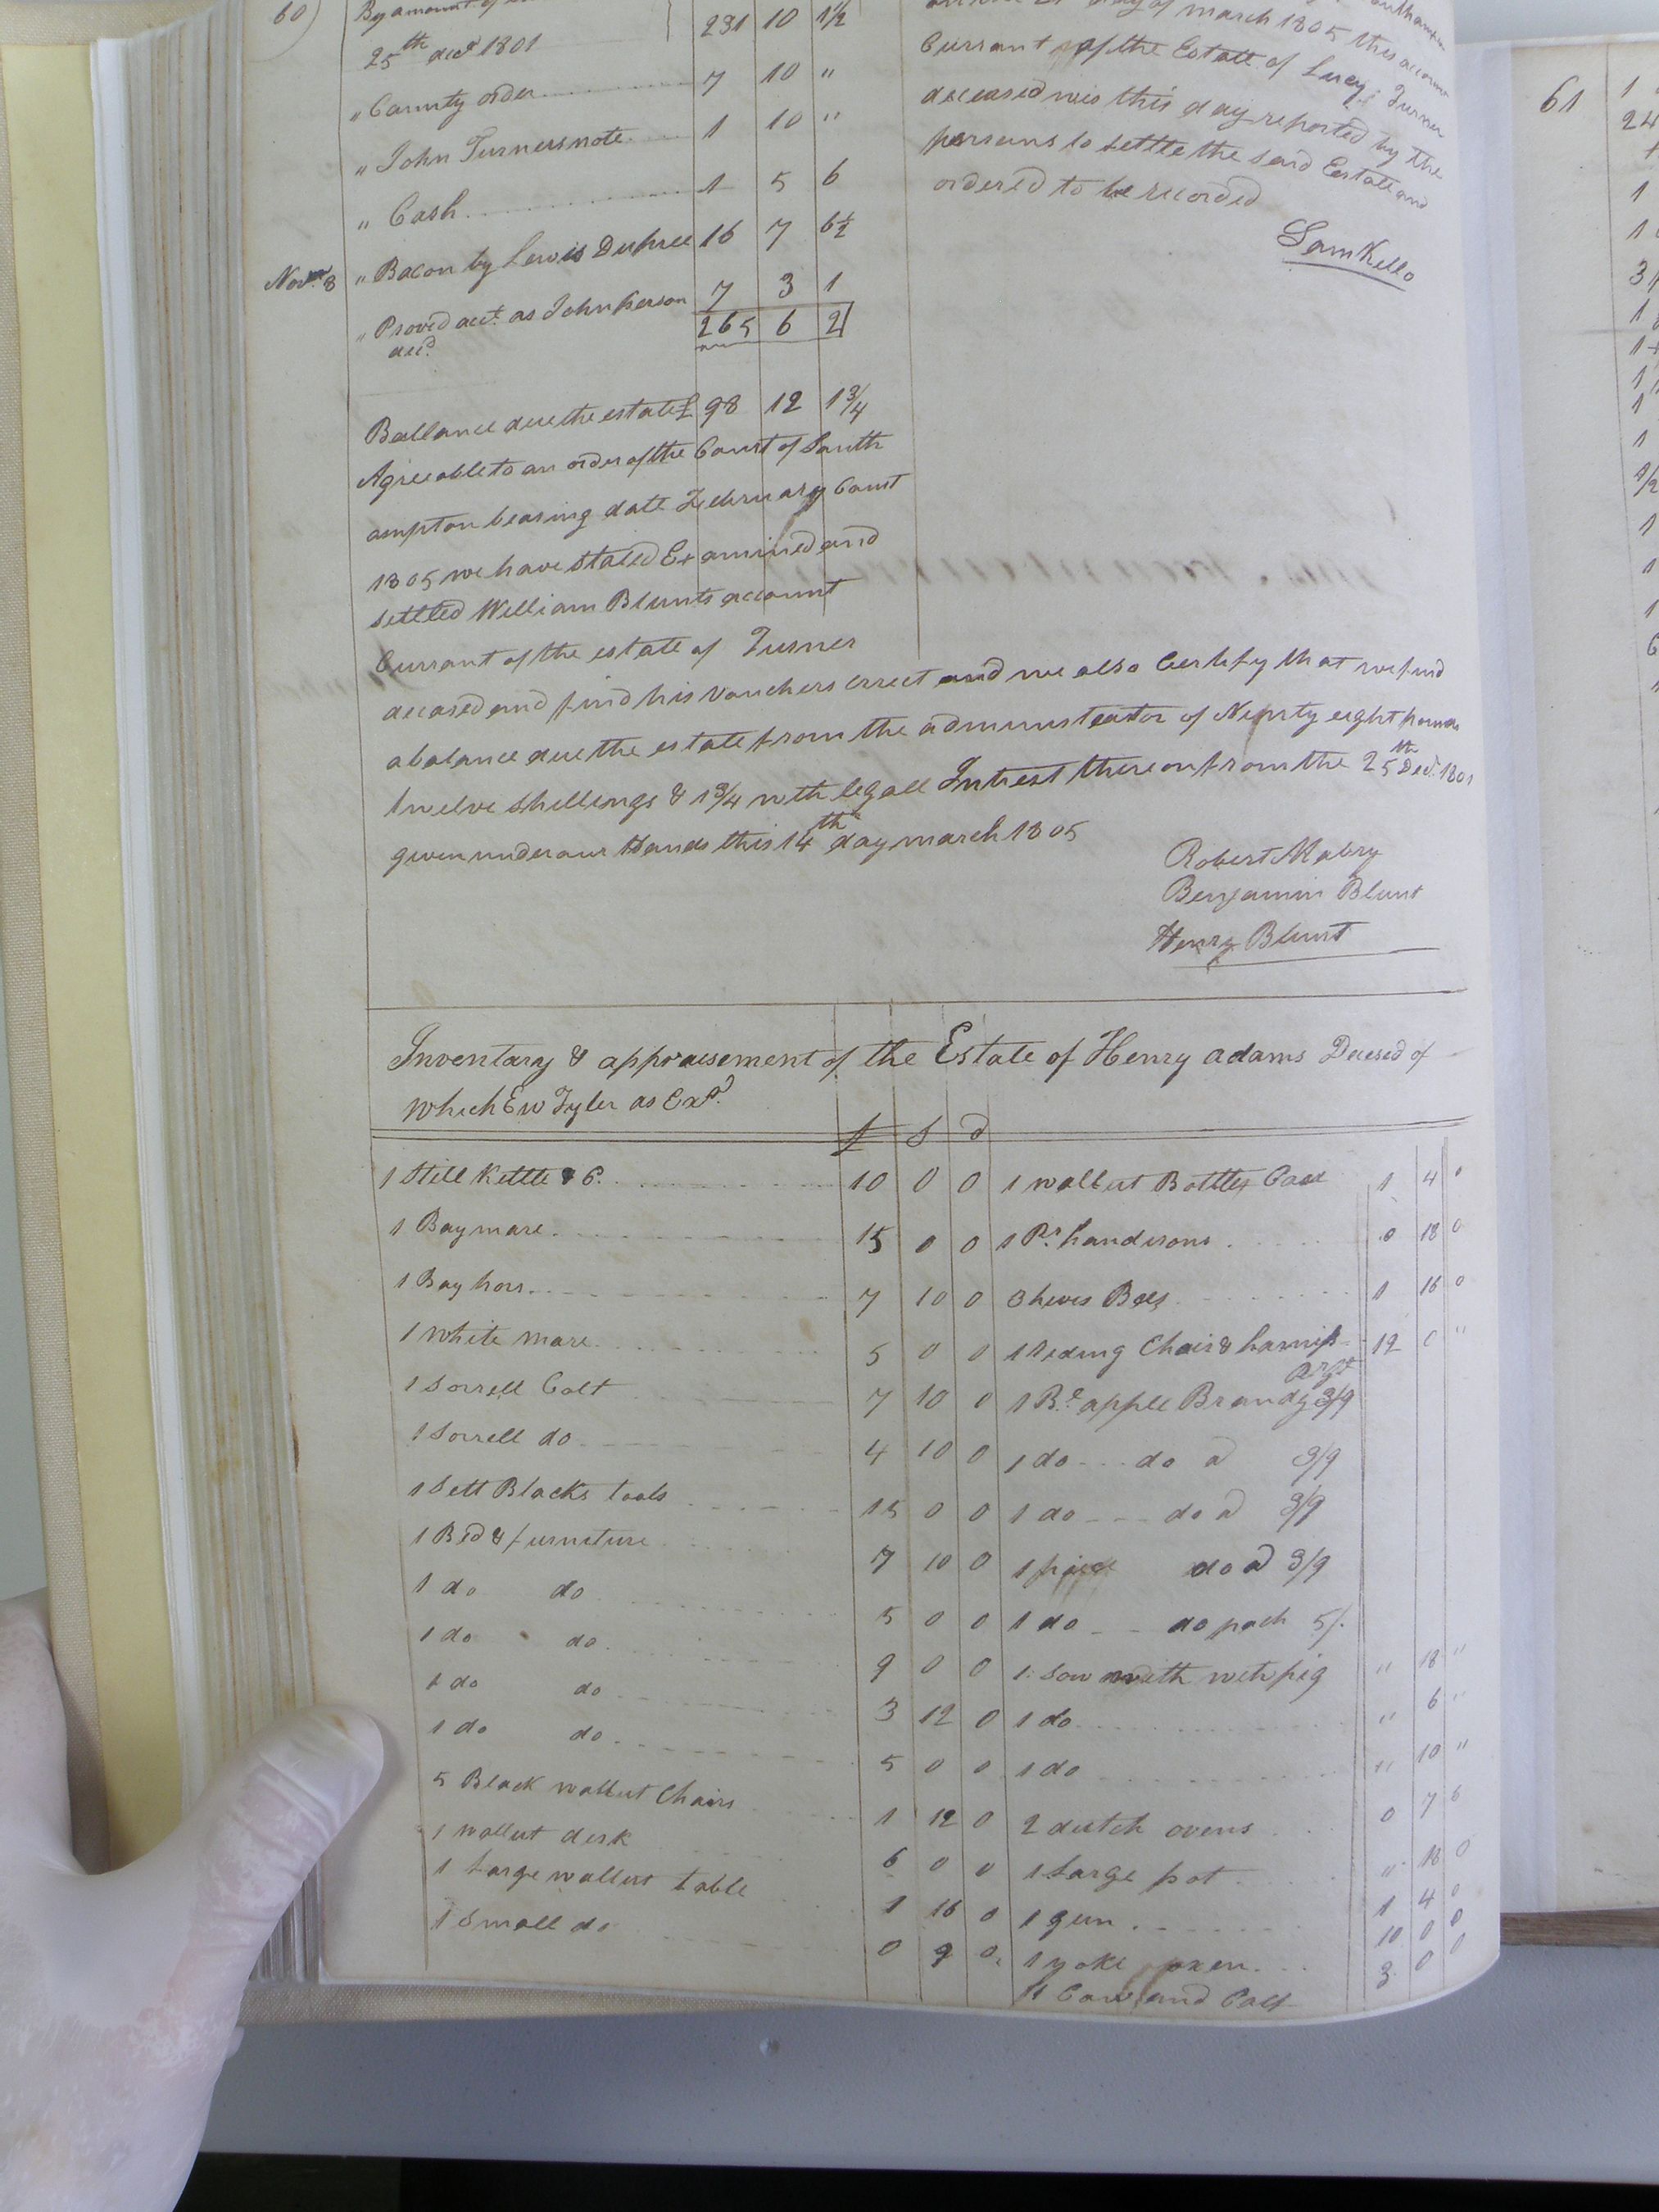 60)
By amount of
25th decr 1801 231 10 1½
" County order 7 10 "
" John Turners note 1 10 "
" Cash 1 5 6
Novr 8 " Bacon by Lewis Dupree 16 7 6½
" Proved acct. as John Person 7 3 1
decd. 265 6 2
day of march 1805 this account
Currant of the Estate of Lucy Turner
deceased was this day reported by the
persons to settle the said Estate and
ordered to be recorded
Sam Kello
Ballance due the estate £ 98 12 1¾
Agreeable to an order of the Court of South
ampton bearing date February Court
1805 we have stated Examined and
settled William Blunts account
Currant of the estate of Turner
deceased and find his vouchers errect and we also Certify that we find
a balance due the estate from the administeator of Ninty eight pounds
twelve shillings & 1¾ with legall Intrest thereon from the 25th Decr. 1801
given under our Hands this 14th day march 1805
Robert Mabry
Benjamin Blunt
Henry Blunt
Inventary & appraisement of the Estate of Henry adams Decesed of
which Ew Tyler as Exr.
£ S d
1 Still Kettle & C. 10 0 0
1 Bay mare 15 0 0
1 Bay hors 7 10 0
1 white mare 5 0 0
1 Sorrell Colt 7 10 0
1 Sorrell do 4 10 0
1 Sett Blacks tools 15 0 0
1 Bed & furniture 7 10 0
1 do do 5 0 0
1 do do 9 0 0
1 do do 3 12 0
1 do do 5 0 0
5 Black wallnut Chairs 1 12 0
1 wallnut desk 6 0 0
1 Large wallnut table 1 16 0
1 Small do 0 9 0
1 wallnut Bottles Case 1 4 0
1 Pr. handirons 0 18 0
3 hives Bees 1 16 0
1 Rideing Chair & harniss 12 0 "
1 Bl. apple Brandy 3/9
1 do do a 3/9
1 do do a 3/9
1 do a 3/9
1 do do peach 5/.
1 Sow with pig " 18 "
1 do " 6 "
1 do " 10 "
2 dutch ovens 0 7 6
1 Large pot " 18 0
1 gun 1 4 0
1 yoke oxen 10 0 0
1 Cow and Calf 3 0 0
61
1
24
1
1
3
1
1
1
1
1
1/2
1
1
1
6